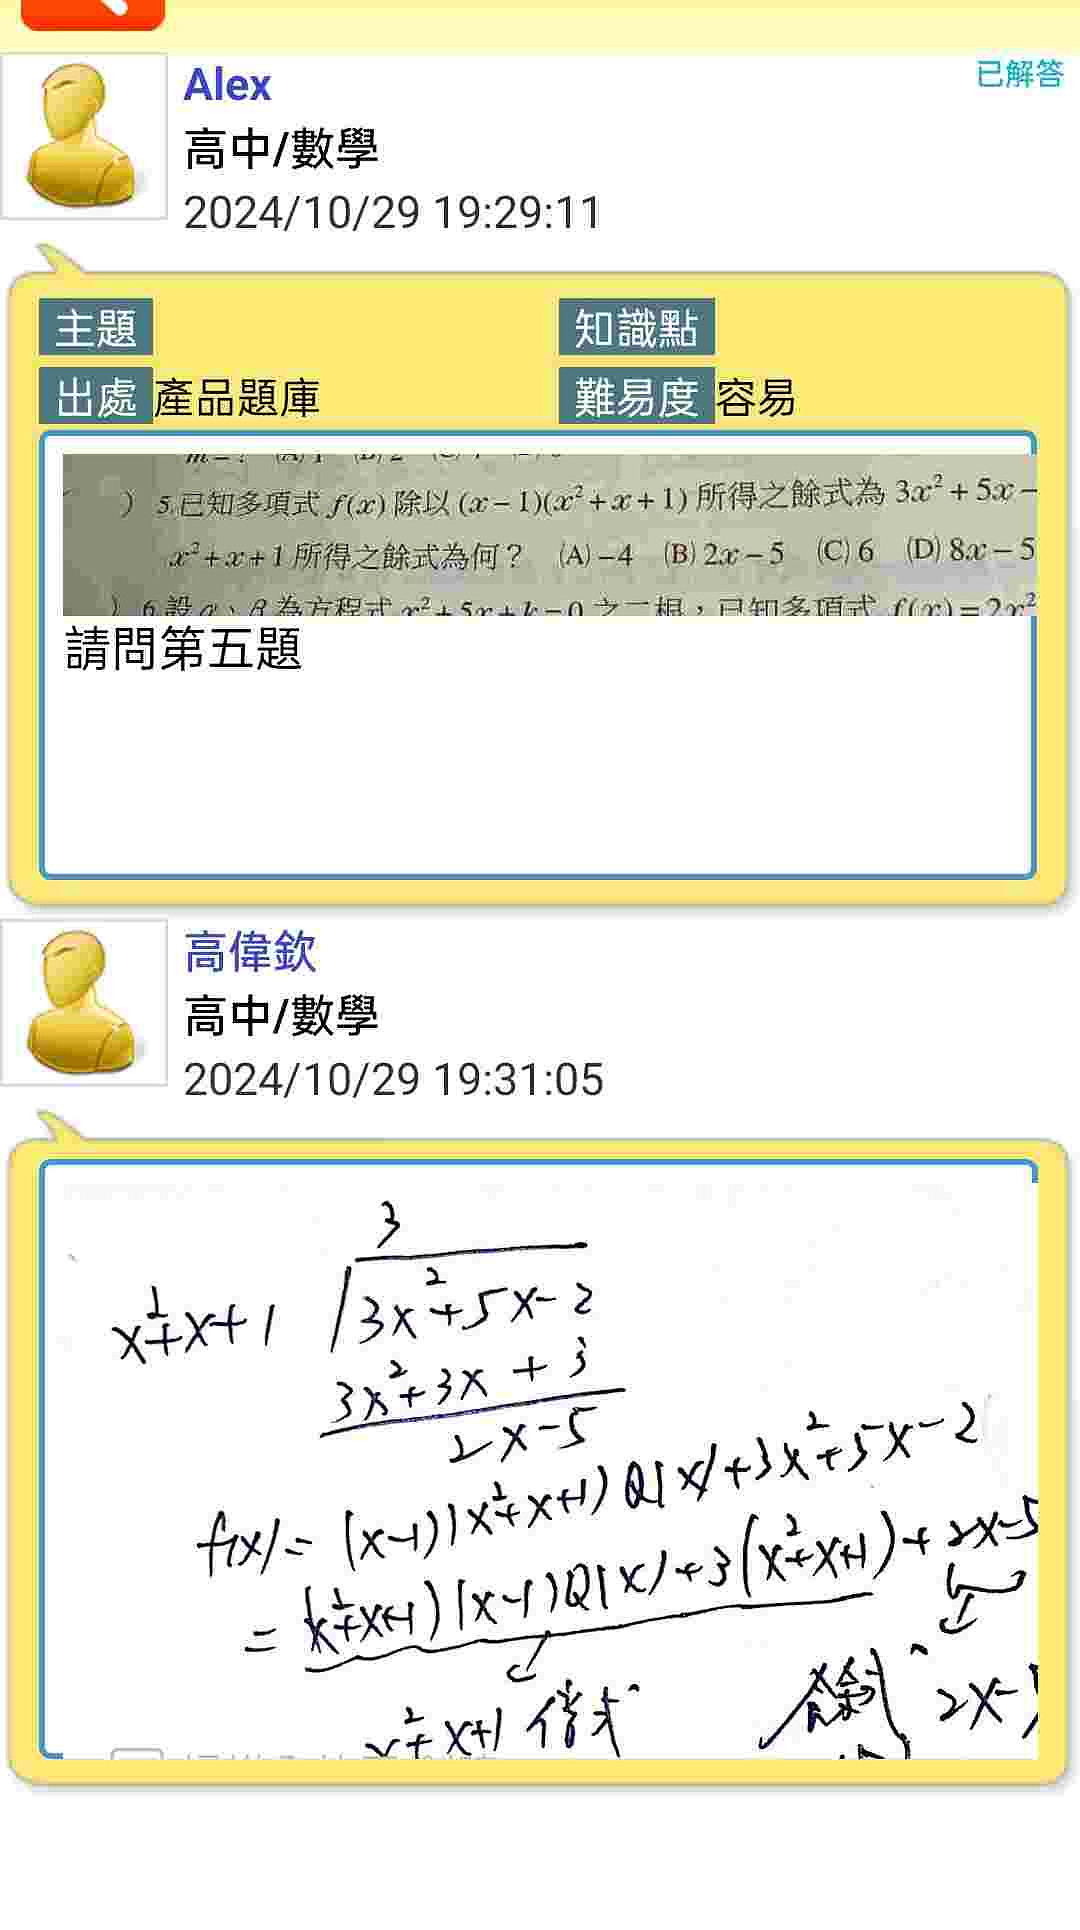 Alex
已解答
高中/數學
2024/10/29 19:29:11
主題 知識點
出處 產品題庫 難易度 容易
) 5.已知多項式 f(x) 除以 (x-1)(x²+x+1) 所得之餘式為 3x²+5x-
x²+x+1 所得之餘式為何？ (A)-4 (B)2x-5 (C)6 (D)8x-5
) 6.設 α、β 為方程式 x²+5x+k=0 之二根，已知多項式 f(x)=2x²
請問第五題
高偉欽
高中/數學
2024/10/29 19:31:05
3
x²+x+1 3x²+5x-2
3x²+3x+3
2x-5
f(x)=(x-1)(x²+x+1)Q(x)+3x²+5x-2
=(x²+x+1)(x-1)Q(x)+3(x²+x+1)+2x-5
x²+x+1 倍式 餘式 2x-